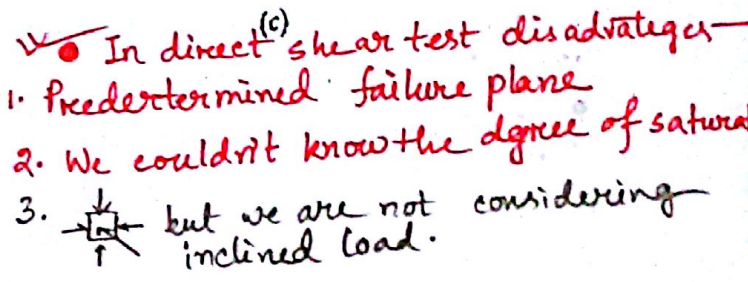 In direct (c) shear test disadvateges —
1. Preedertermined failure plane
2. We couldn't know the dgree of satura
3. but we are not considering
inclined load.